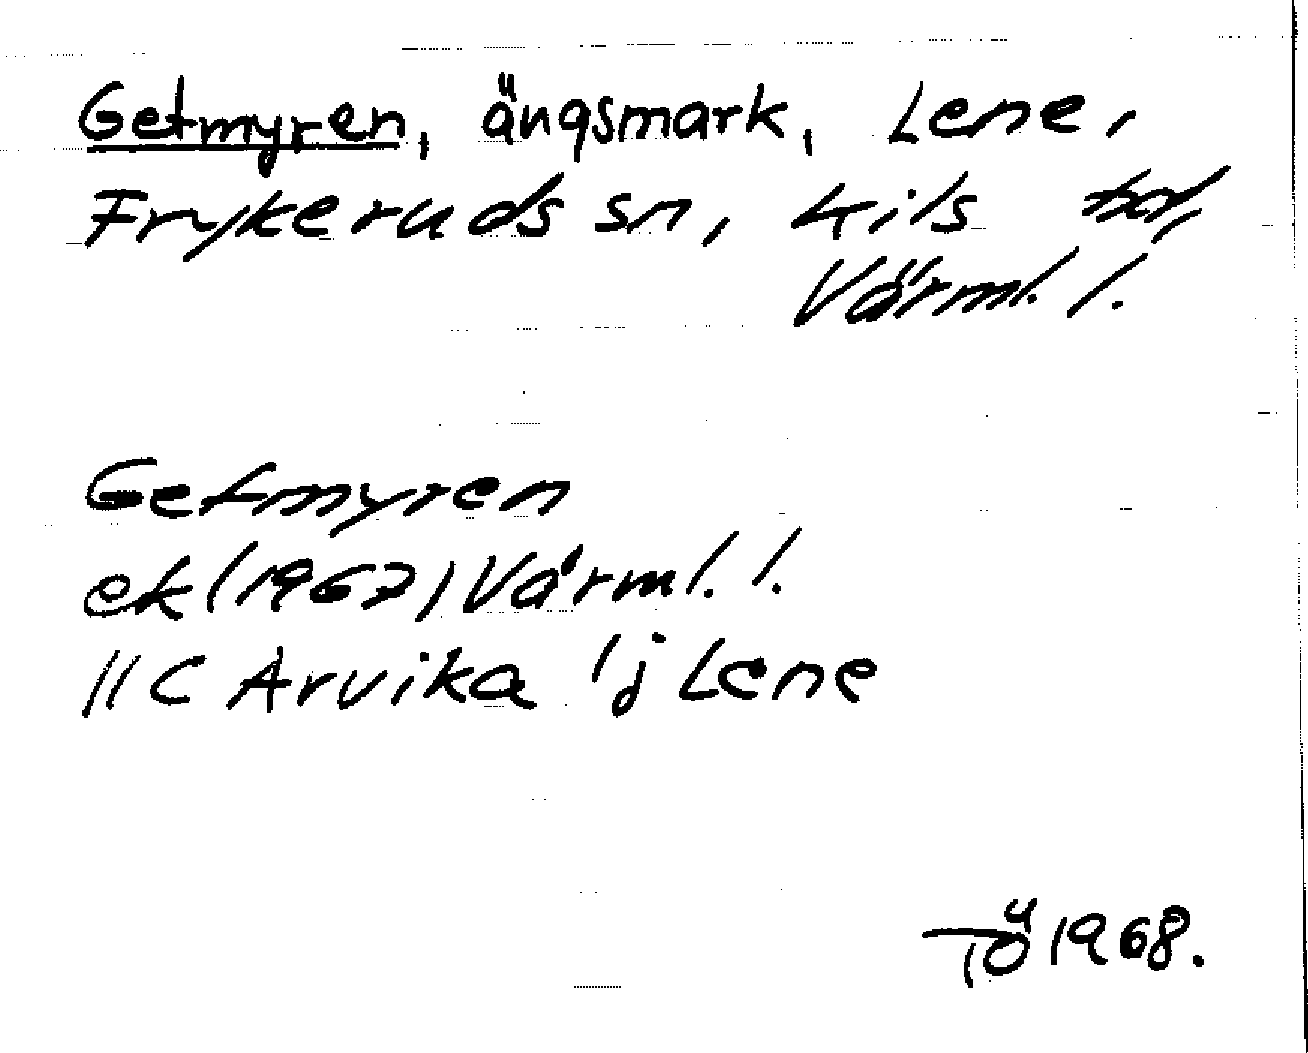 Getmyren, ängsmark, Lene,
Frykeruds sn, Kils hd,
Värml. l.
Getmyren
ek (1967) Värml. l.
11C Arvika 1j Lene
TÖ 1968.